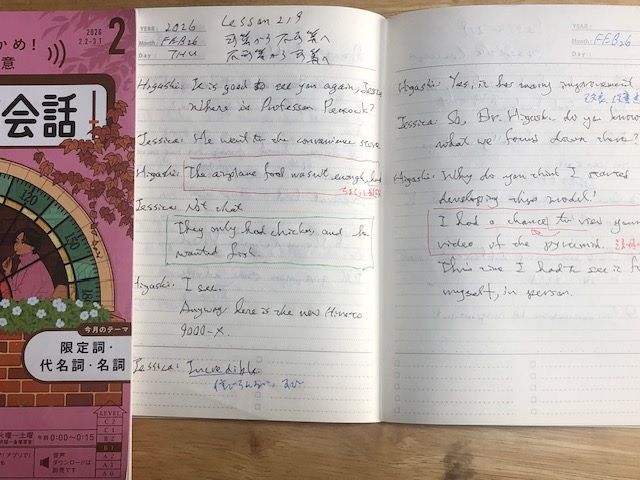 かめ!
意
2026
2.2-3.1
2
会話
今月のテーマ
限定詞・
代名詞・名詞
火曜~土曜
午前0:00~0:15
音声
ダウンロードは
別売です
LEVEL
C2
C1
B2
B1
A2
A1
A0
YEAR: 2026 Lesson 219
Month: FEB26 可算から不可算へ
Day: THU 不可算から可算へ
Higashi: It is good to see you again, Jessica
Where is Professor Peacock?
Jessica: He went to the convenience store
Higashi: The airplane food wasn't enough,
Jessica: Not that
They only had chicken and he
wanted fish
Higashi: I see.
Anyway here is the new
9000-X.
Jessica: Incredible.
YEAR:
Month: FEB26
Day:
Higashi: Yes, it has many improvement
Jessica: So, Dr. Higashi do you know
what we found down there?
Higashi: Why do you think I started
developing this model!
I had a chance to view your
video of the pyramid.
This time I had to see it for
myself, in person.